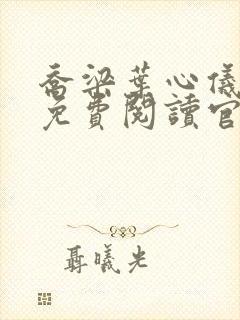 喬梁葉心儀
免費閱讀官
聶曦光